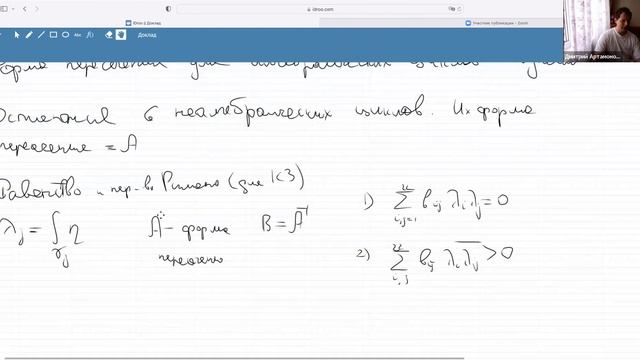 idroo.com
Idroo || Доклад
Участник публикации – Zoom
Доклад
Дмитрий Артамоно...
форма пересечения для алгебраических циклов
Остальные 6 неалгебраических циклов. Их форма
пересечение = A
Равенство и нер-во Римана (для K3)
λ_j = ∫_{γ_j} η
A – форма
пересечения
B = A^{-1}
1) ∑_{i,j=1} b_{ij} λ_i λ_j = 0
2) ∑_{i,j} b_{ij} λ_i \overline{λ_j} > 0